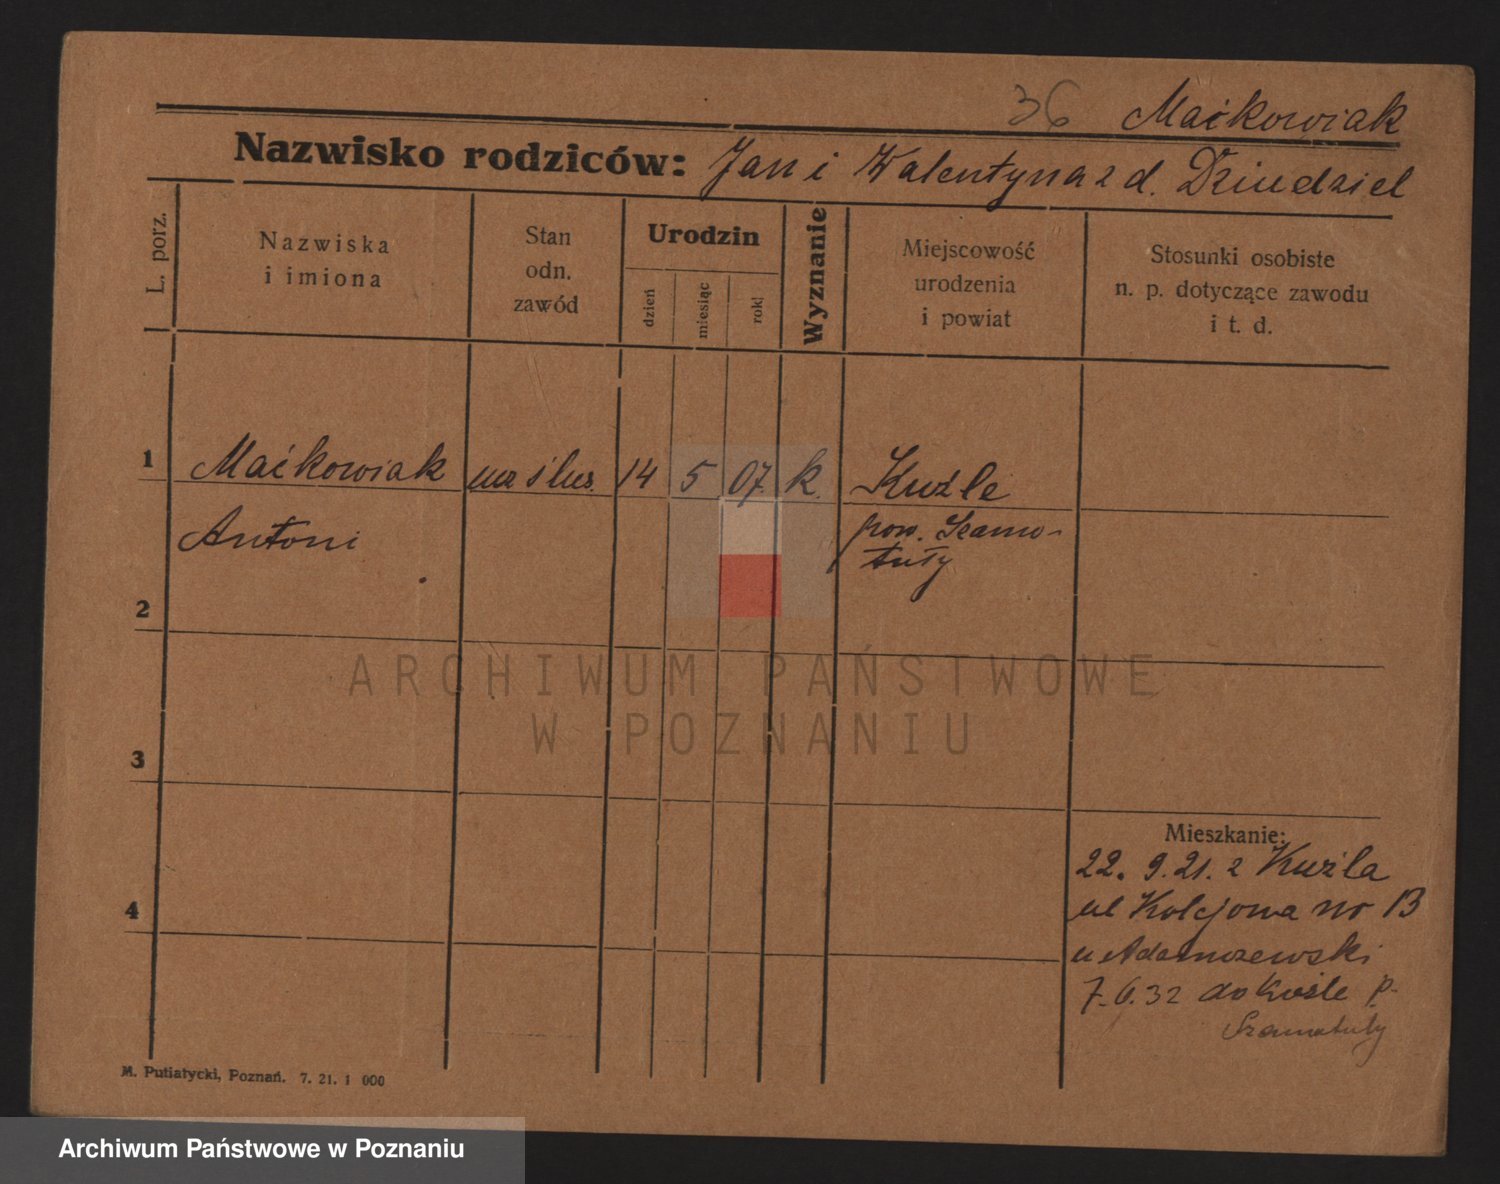 36 Maćkowiak
Nazwisko rodziców: Jan i Walentyna z d. Dziudziel
L. porz.
Nazwiska
i imiona
Stan
odn.
zawód
Urodzin
dzień
miesiąc
rok
Wyznanie
Miejscowość
urodzenia
i powiat
Stosunki osobiste
n. p. dotyczące zawodu
i t. d.
1 Maćkowiak ucz ślus. 14 5 07. k. Kuźle
Antoni pow. Szamo-
tuły
2
ARCHIWUM PAŃSTWOWE
W POZNANIU
3
Mieszkanie:
22. 9. 21. z Kuźla
4 ul Kolejowa nr 13
u Adamszewski
7. 6. 32 do Kuźle p.
Szamotuły
M. Putiatycki, Poznań. 7. 21. 1 000
Archiwum Państwowe w Poznaniu